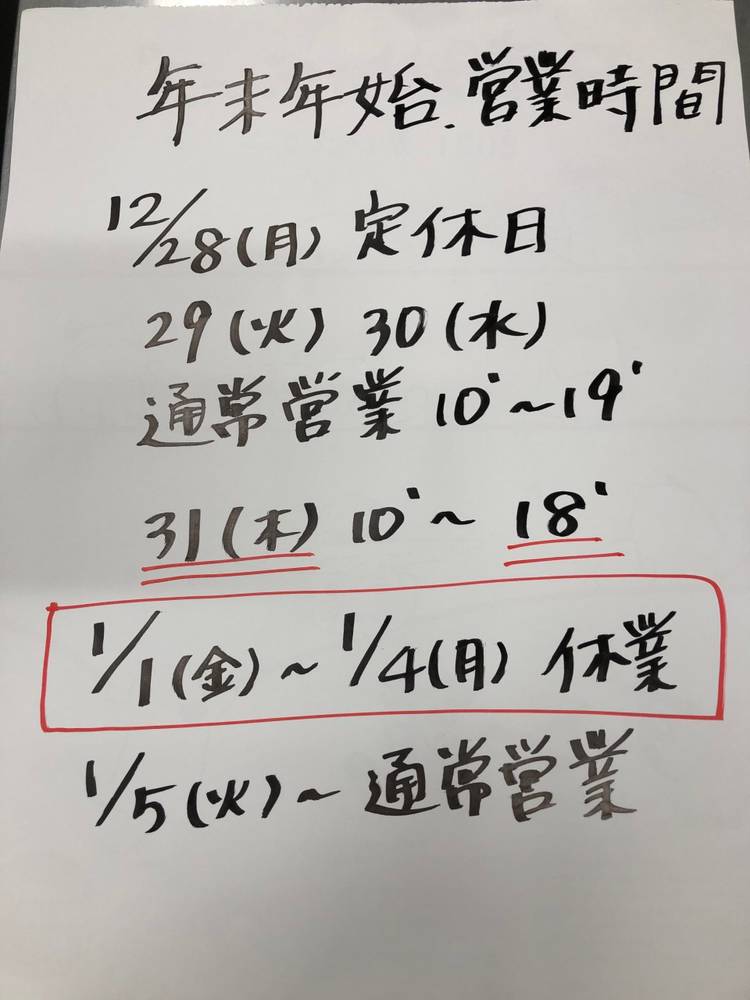 年末年始.営業時間
12/28(月) 定休日
29(火) 30(水)
通常営業 10'~19'
31(木) 10'~18'
1/1(金)~1/4(月) 休業
1/5(火)~通常営業